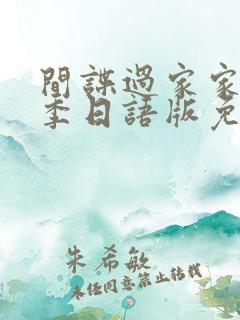 間諜過家家
季日語版免
朱希敏
未经同意禁止转载